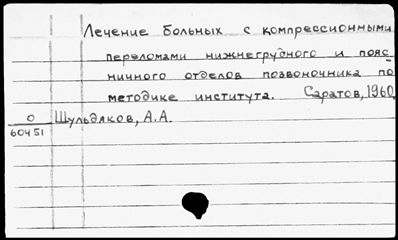 Лечение больных с компрессионными
переломами нижнегрудного и пояс-
ничного отделов позвоночника по
методике института. Саратов, 1960
О
60451
Шульдяков, А.А.